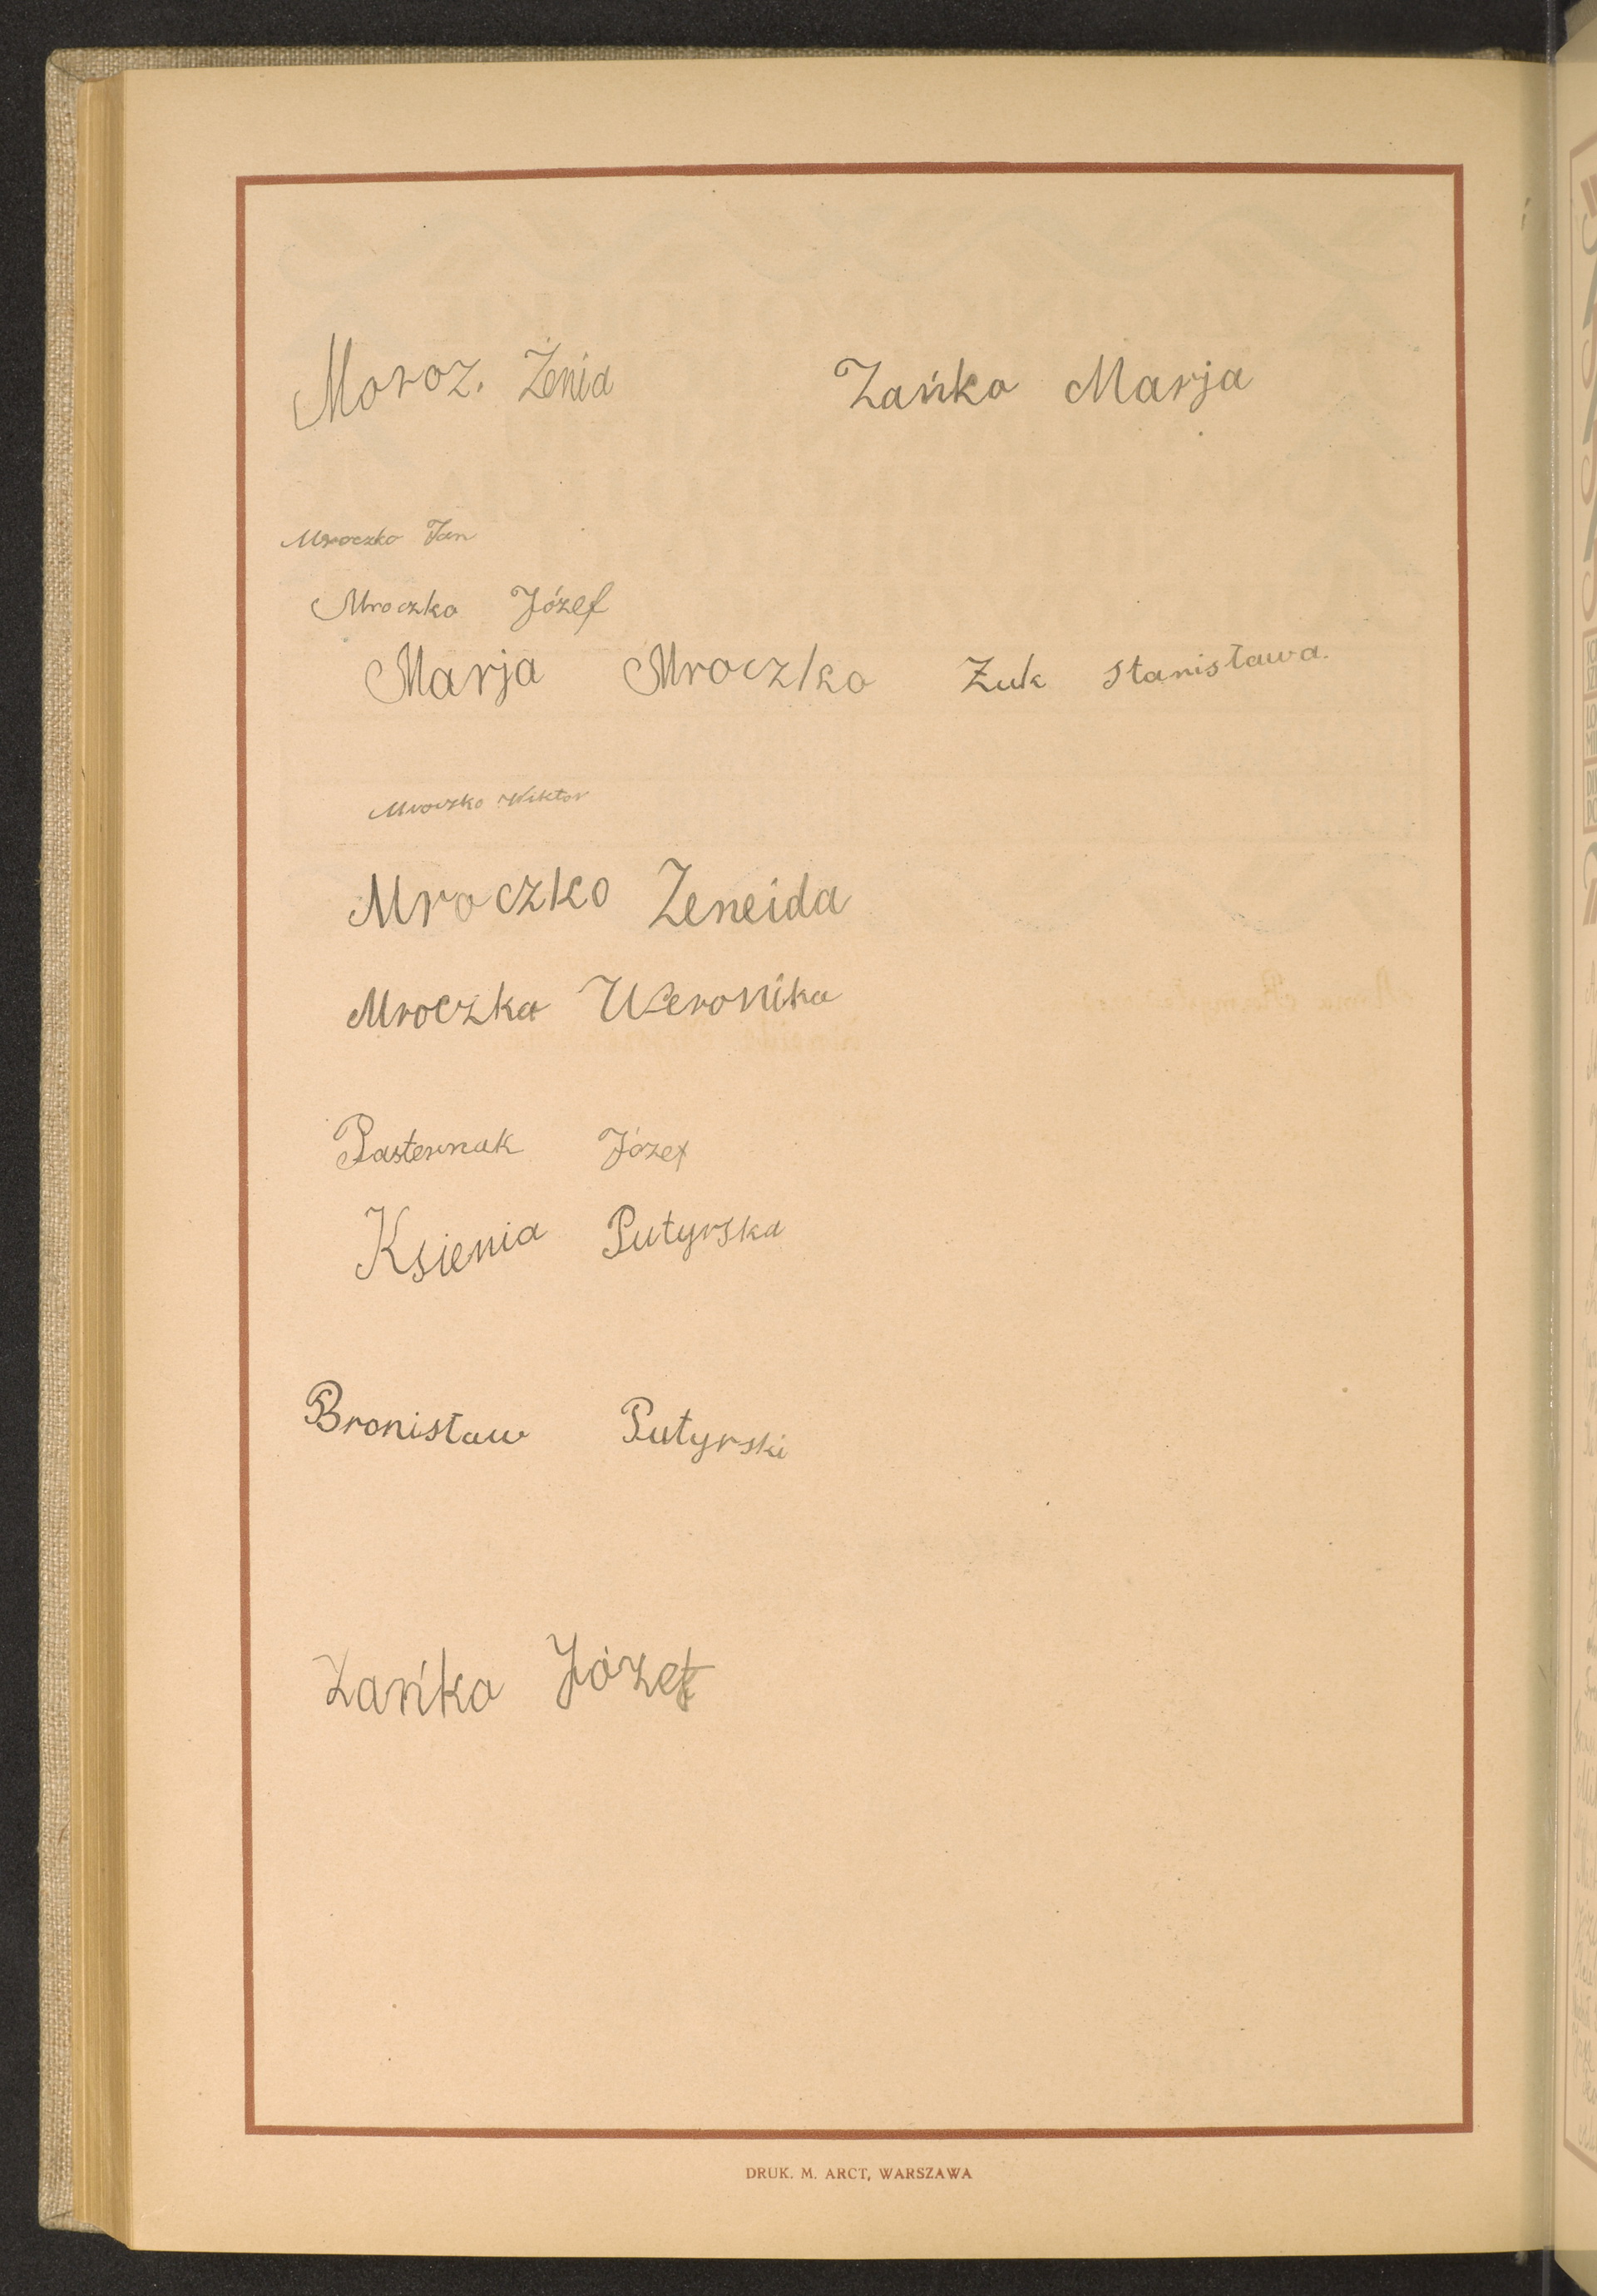 Moroz. Żenia Zańko Marja
Mroczko Jan
Mroczko Józef
Marja Mroczko Żuk Stanisława.
Mroczko Wiktor
Mroczko Zeneida
Mroczka Weronika
Pasternak Józef
Ksienia Putyrska
Bronisław Putyrski
Zańko Józef
DRUK. M. ARCT, WARSZAWA